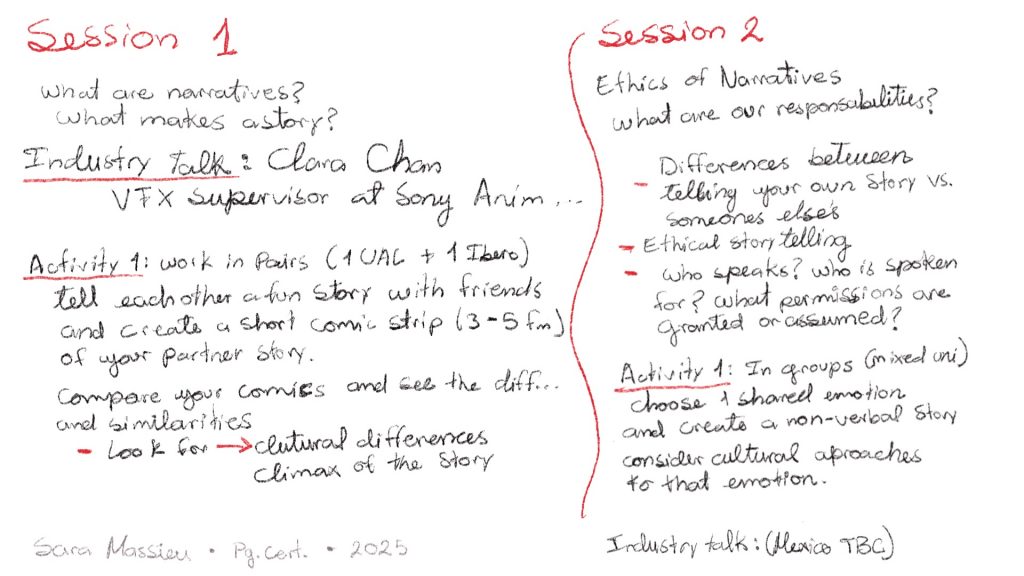 Session 1
what are narratives?
what makes a story?
Industry talk: Clara Chan
VFX Supervisor at Sony Anim...
Activity 1: work in Pairs (1 UAL + 1 Ibero)
tell each other a fun story with friends
and create a short comic strip (3-5 fm)
of your partner story.
Compare your comics and see the diff...
and similarities
- Look for → clutural differences
climax of the Story
Sara Massieu • Pg.cert. • 2025
Session 2
Ethics of Narratives
what are our responsabilities?
Differences between
- telling your own Story vs.
someones else's
- Ethical story telling
- who speaks? who is spoken
for? what permissions are
granted or assumed?
Activity 1: In groups (mixed uni)
choose 1 shared emotion
and create a non-verbal Story
consider cultural aproaches
to that emotion.
Industry talk: (Mexico TBC)